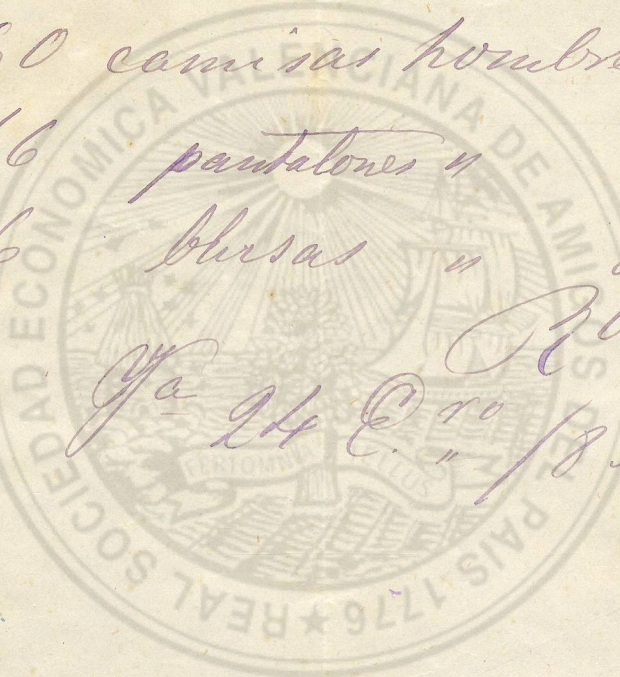 0 camisas hombre
6 pantalones "
blusas "
Ya 24 E.ro /8
REAL SOCIEDAD ECONOMICA VALENCIANA DE AMIGOS DEL PAIS 1776 ★
FERT OMNIA TELLUS